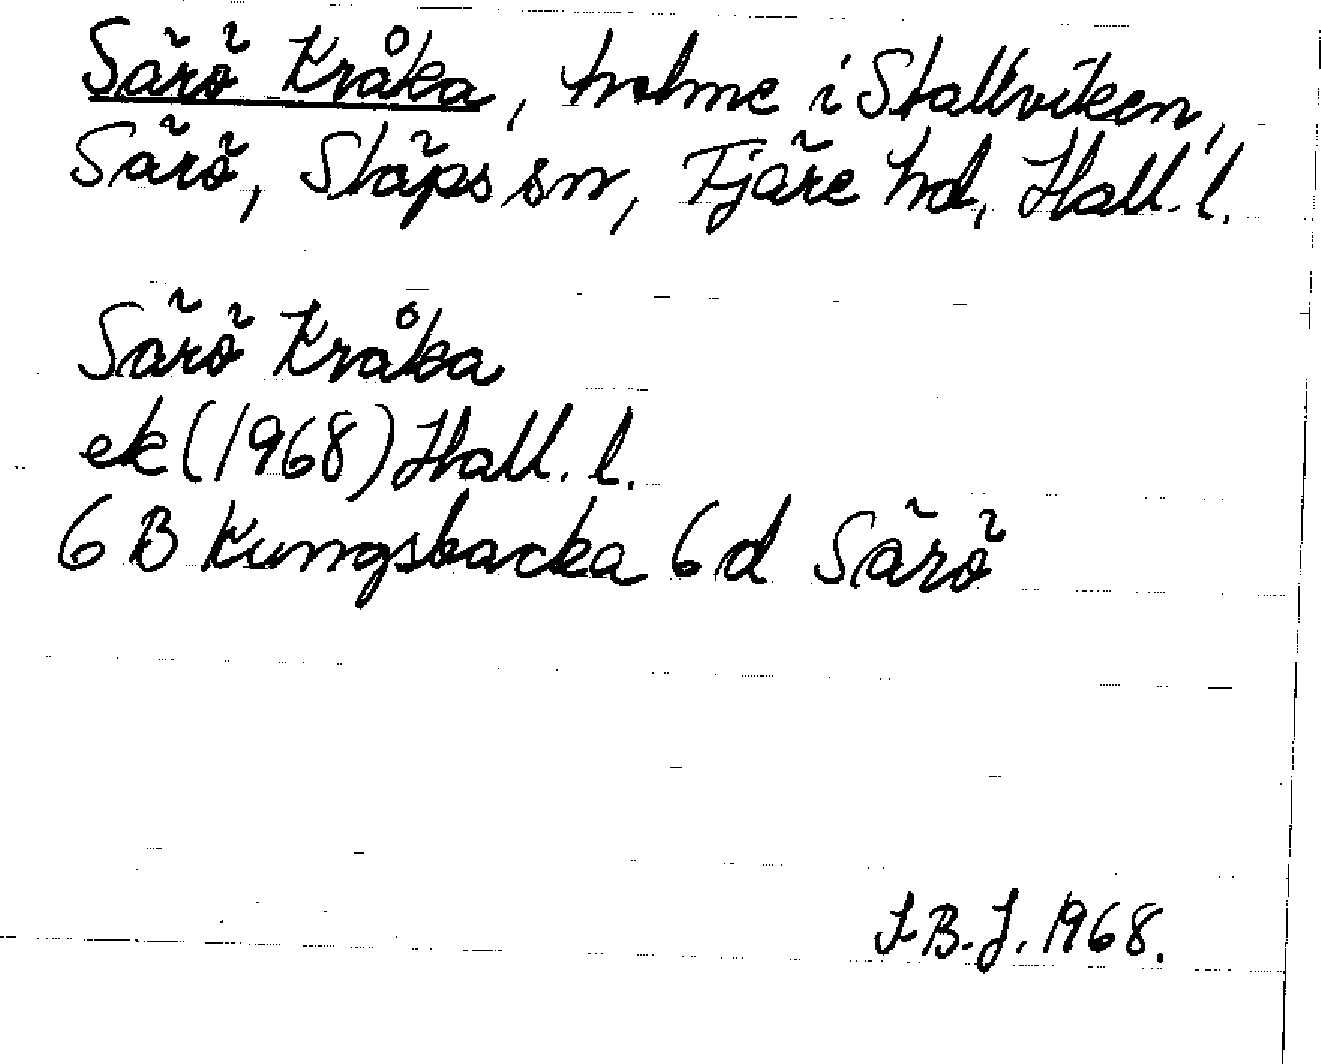 Särö Kråka, holme i Stallviken,
Särö, Släps sn, Fjäre hd, Hall. l.
Särö Kråka
ek (1968) Hall. l.
6 B Kungsbacka 6 d Särö
J.B.J. 1968.